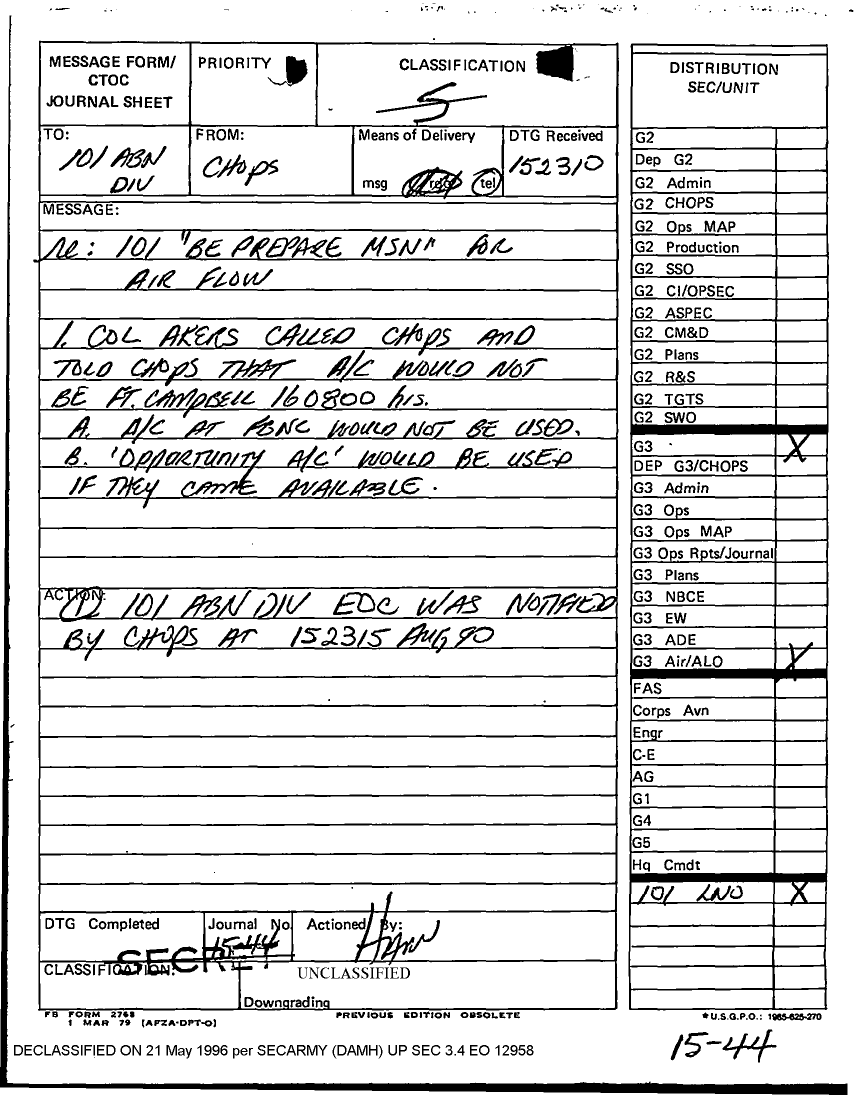 MESSAGE FORM/
CTOC
JOURNAL SHEET
PRIORITY
CLASSIFICATION
S
TO:
101 ABN
DIV
FROM:
CHOPS
Means of Delivery
msg tel
DTG Received
152310
MESSAGE:
re: 101 "BE PREPARE MSN" FOR
AIR FLOW
1. COL AKERS CALLED CHOPS AND
TOLD CHOPS THAT A/C WOULD NOT
BE FT. CAMPBELL 160800 hrs.
A. A/C AT FBNC WOULD NOT BE USED.
B. 'OPPORTUNITY A/C' WOULD BE USED
IF THEY CAME AVAILABLE.
ACTION:
① 101 ABN DIV EOC WAS NOTIFIED
BY CHOPS AT 152315 AUG 90
DTG Completed
Journal No.
15-44
Actioned By:
CLASSIFICATION:
SECRET
UNCLASSIFIED
Downgrading
FB FORM 2768
1 MAR 79 (AFZA-DPT-O)
PREVIOUS EDITION OBSOLETE
DISTRIBUTION
SEC/UNIT
G2
Dep G2
G2 Admin
G2 CHOPS
G2 Ops MAP
G2 Production
G2 SSO
G2 CI/OPSEC
G2 ASPEC
G2 CM&D
G2 Plans
G2 R&S
G2 TGTS
G2 SWO
G3 X
DEP G3/CHOPS
G3 Admin
G3 Ops
G3 Ops MAP
G3 Ops Rpts/Journal
G3 Plans
G3 NBCE
G3 EW
G3 ADE
G3 Air/ALO X
FAS
Corps Avn
Engr
C-E
AG
G1
G4
G5
Hq Cmdt
101 LNO X
*U.S.G.P.O.: 1985-625-270
15-44
DECLASSIFIED ON 21 May 1996 per SECARMY (DAMH) UP SEC 3.4 EO 12958